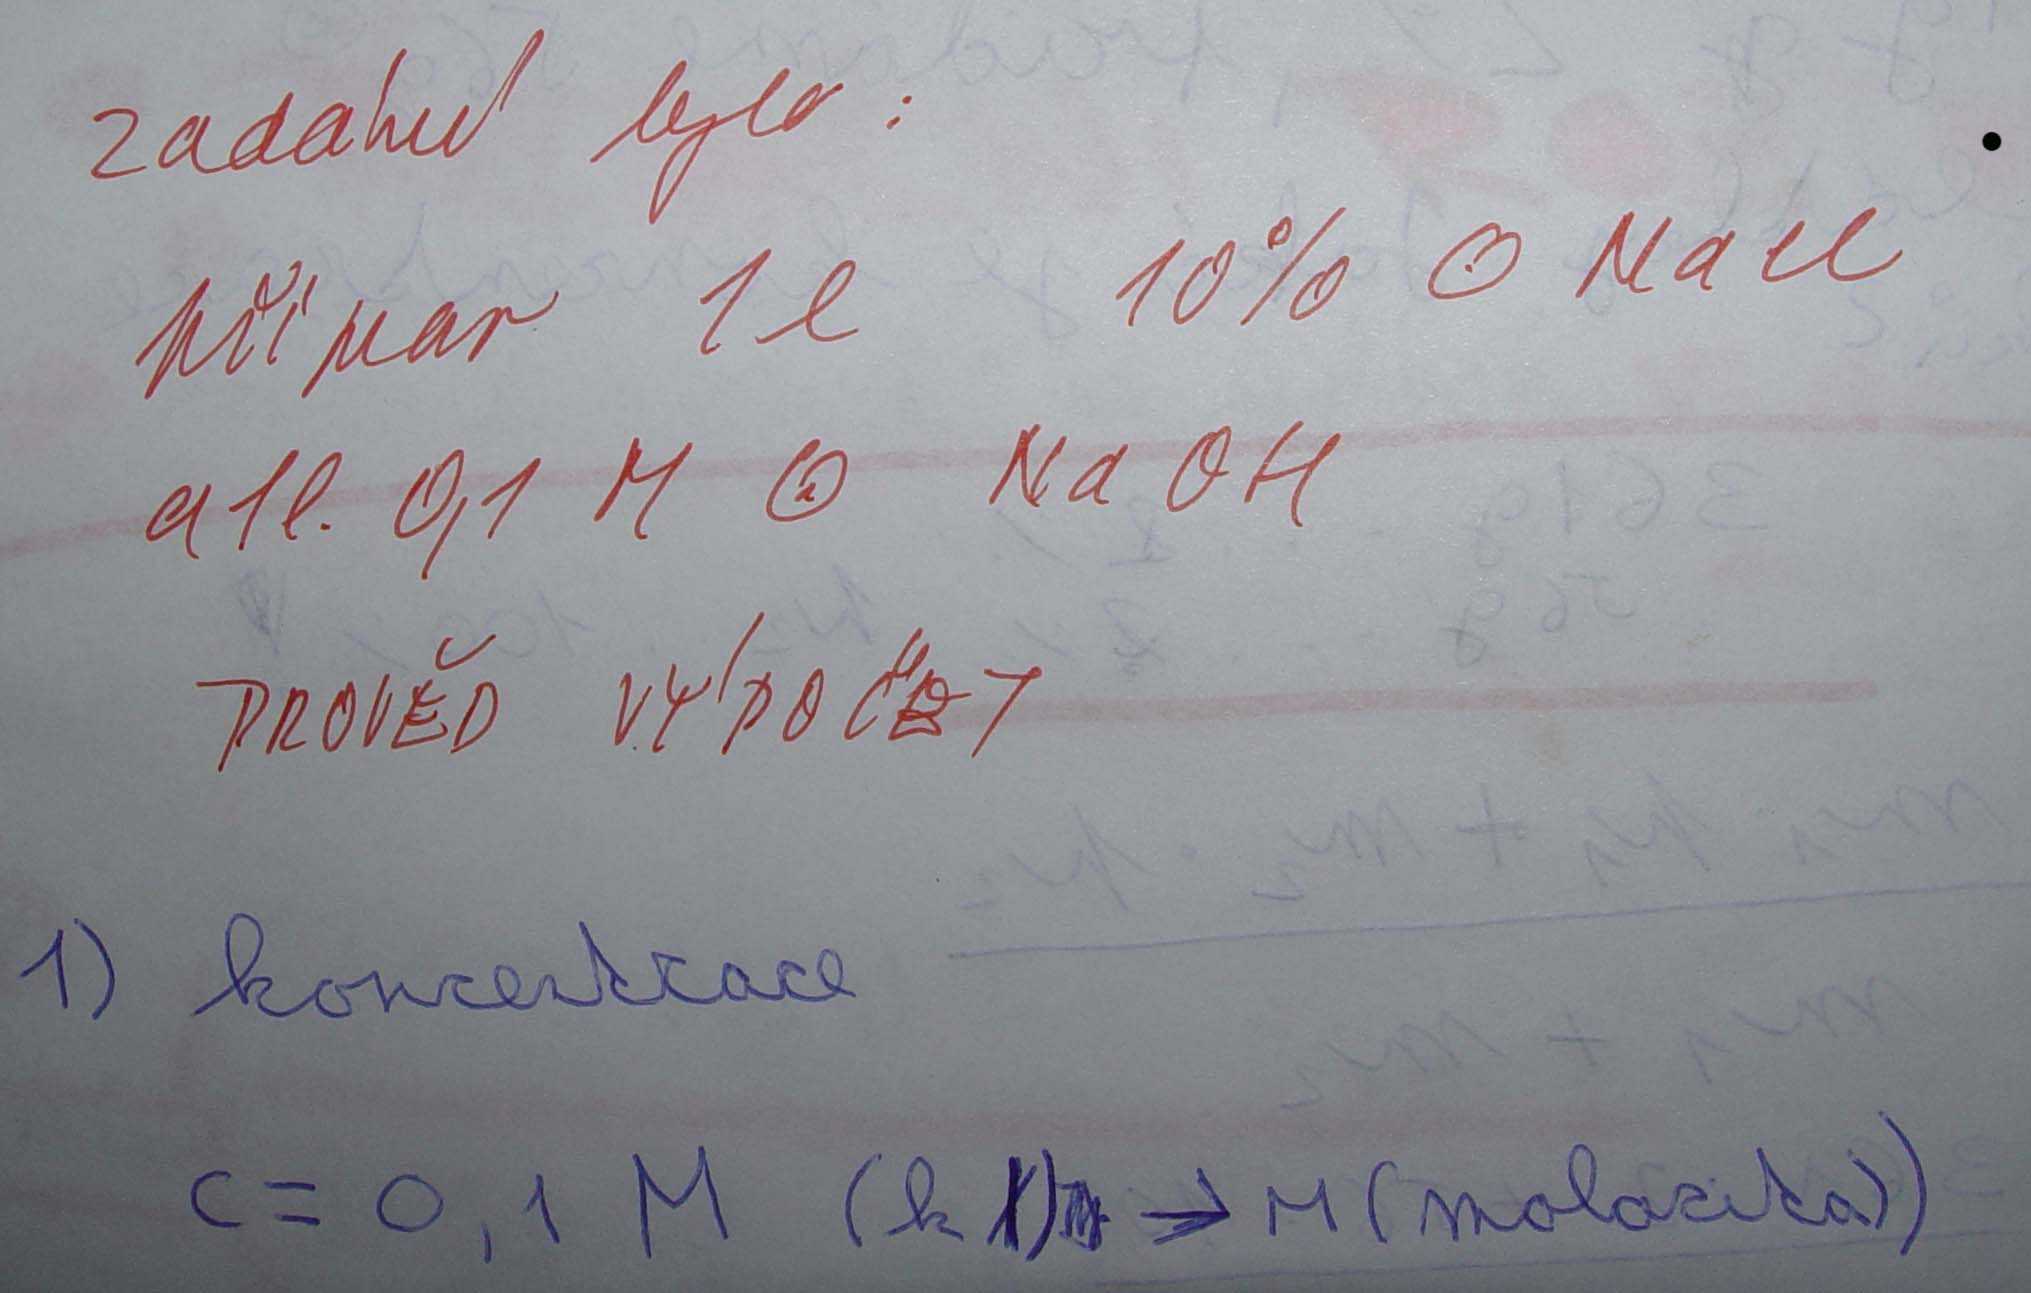 zadání bylo:
připrav 1l 10% ⊙ NaCl
a 1l. 0,1 M ⊙ NaOH
PROVEĎ VÝPOČET
1) koncentrace
c = 0,1 M (k → M (molarita))